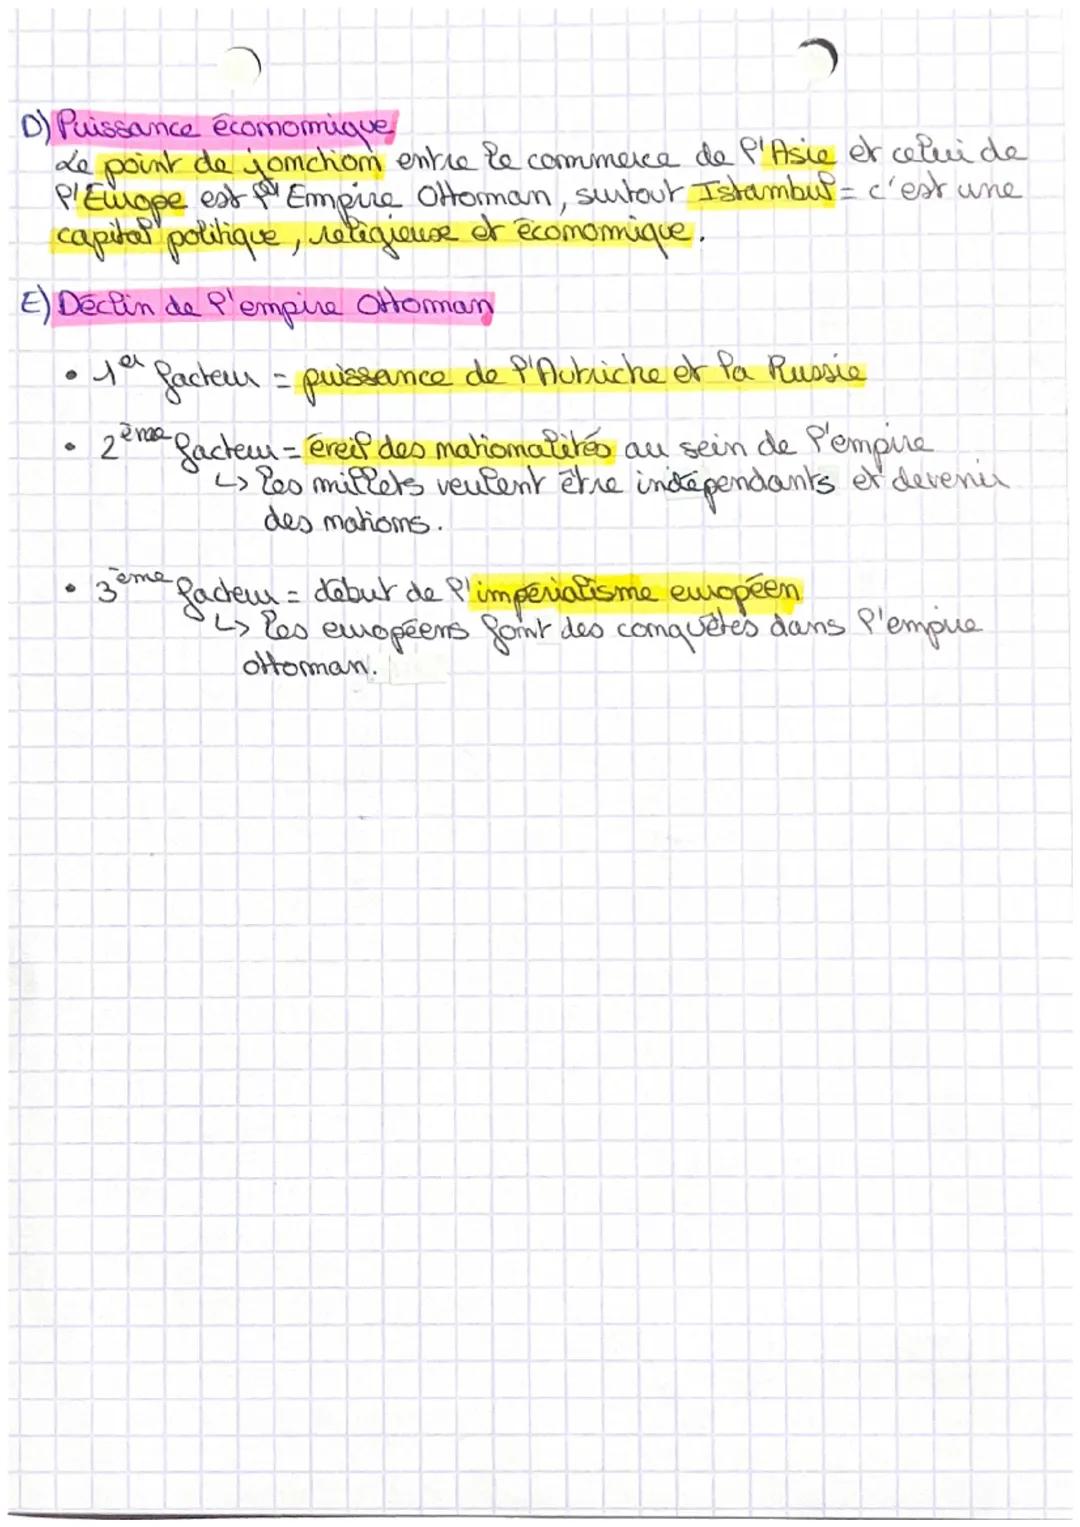 D) Puissance économique
Le point de jonction entre le commerce de l'Asie et celui de
l'Europe est l'Empire Ottoman, surtout Istambul = c'est une
capital politique, religieuse et économique.
E) Déclin de l'empire Ottoman
• 1er facteur = puissance de l'Autriche et la Russie
• 2ème facteur = éreil des nationalités au sein de l'empire
↳ les millets veulent être indépendants et devenir
des nations.
• 3ème facteur = début de l'impérialisme européen
↳ les européens font des conquêtes dans l'empire
ottoman.